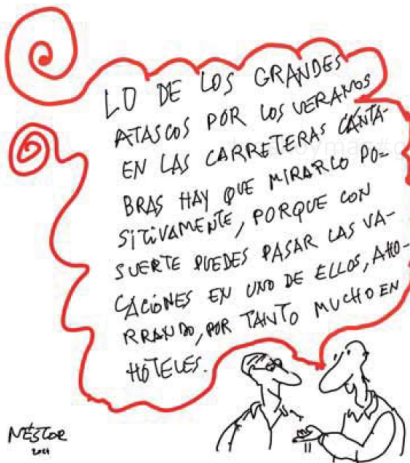 LO DE LOS GRANDES
ATASCOS POR LOS VERANOS
EN LAS CARRETERAS CÁNTA-
BRAS HAY QUE MIRARLO PO-
SITIVAMENTE, PORQUE CON
SUERTE PUEDES PASAR LAS VA-
CACIONES EN UNO DE ELLOS, AHO-
RRANDO, POR TANTO MUCHO EN
HOTELES.
NÉSTOR